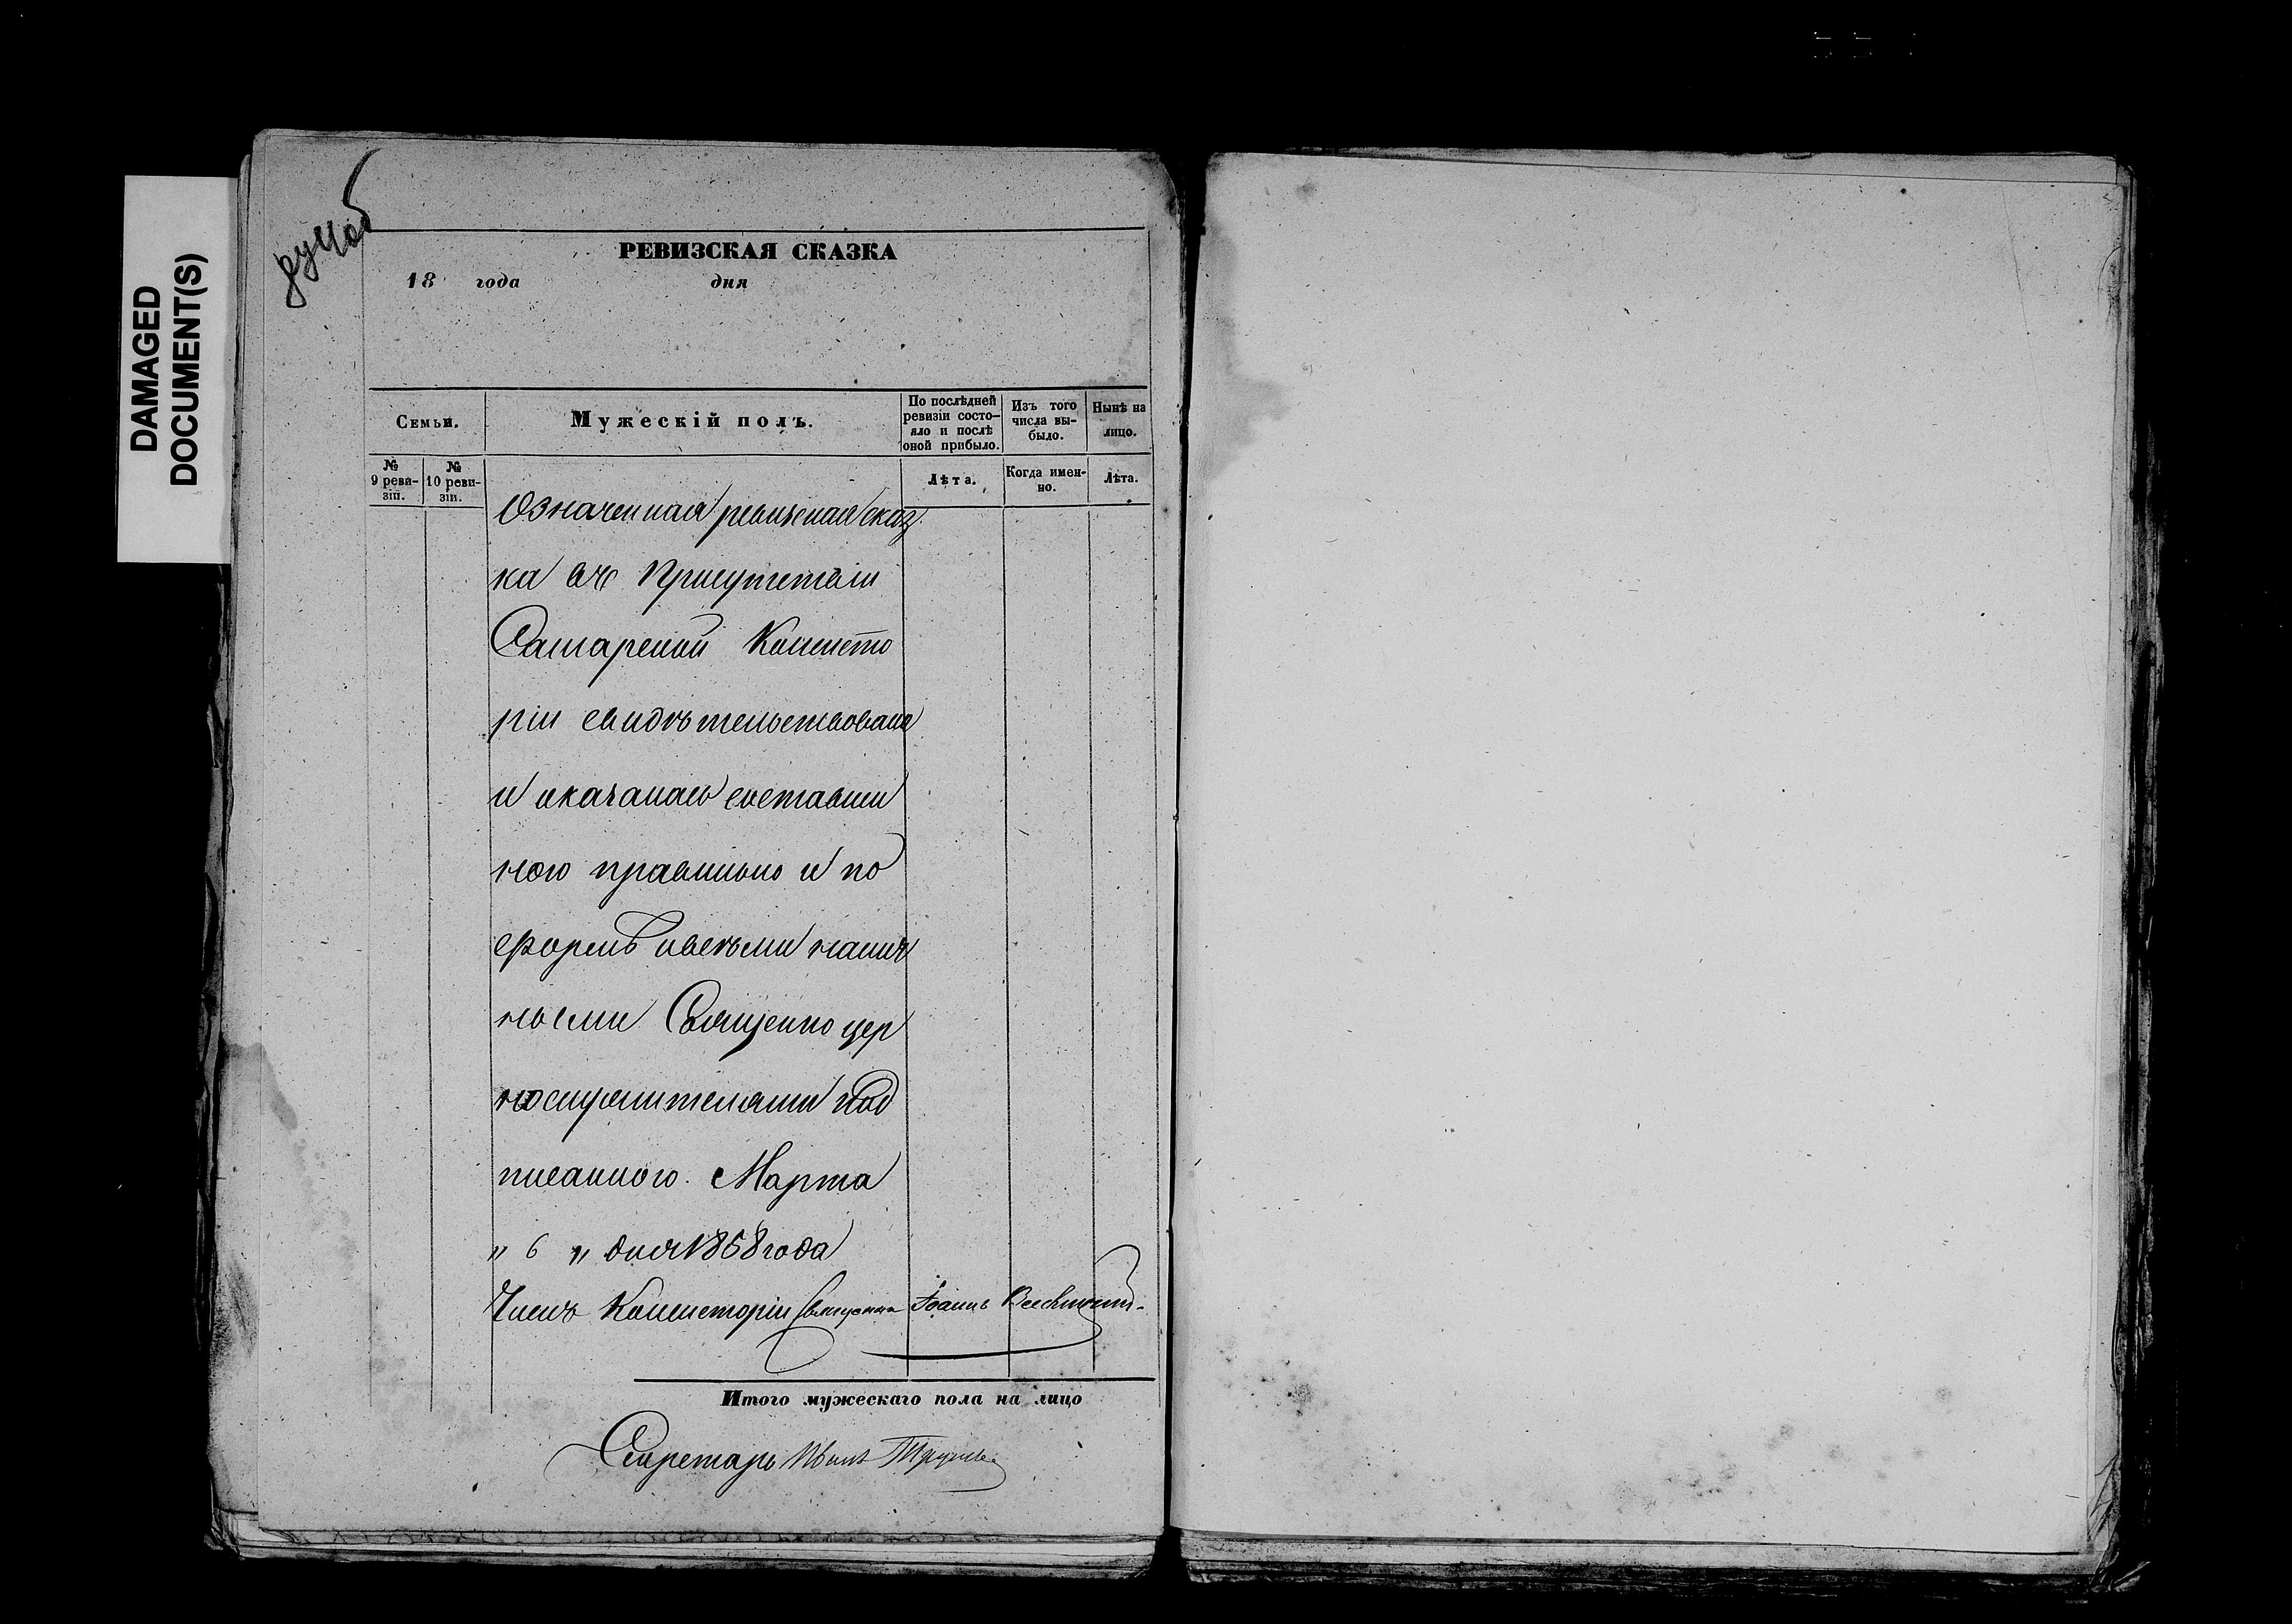 DAMAGED
DOCUMENT(S)
РЕВИЗСКАЯ СКАЗКА
18 года дня
Семьи.
Мужескій полъ.
По послѣдней ревизіи состо-яло и послѣ оной прибыло.
Изъ того числа вы-было.
Нынѣ на лицо.
№ 9 реви-зіи.
№ 10 реви-зіи.
Лѣта.
Когда имен-но.
Лѣта.
Означенная ревизская сказ
ка въ Присутствіи
Самарской Консисто
ріи свидѣтельствована
и оказалась составлен
ною правильно и по
формѣ и всѣми налич
ными Священно цер
ковнослужителями под
писанною. Марта
" 6 " дня 1858 года
Членъ Консисторіи Священникъ Іоаннъ
Итого мужескаго пола на лицо
Секретарь Иванъ